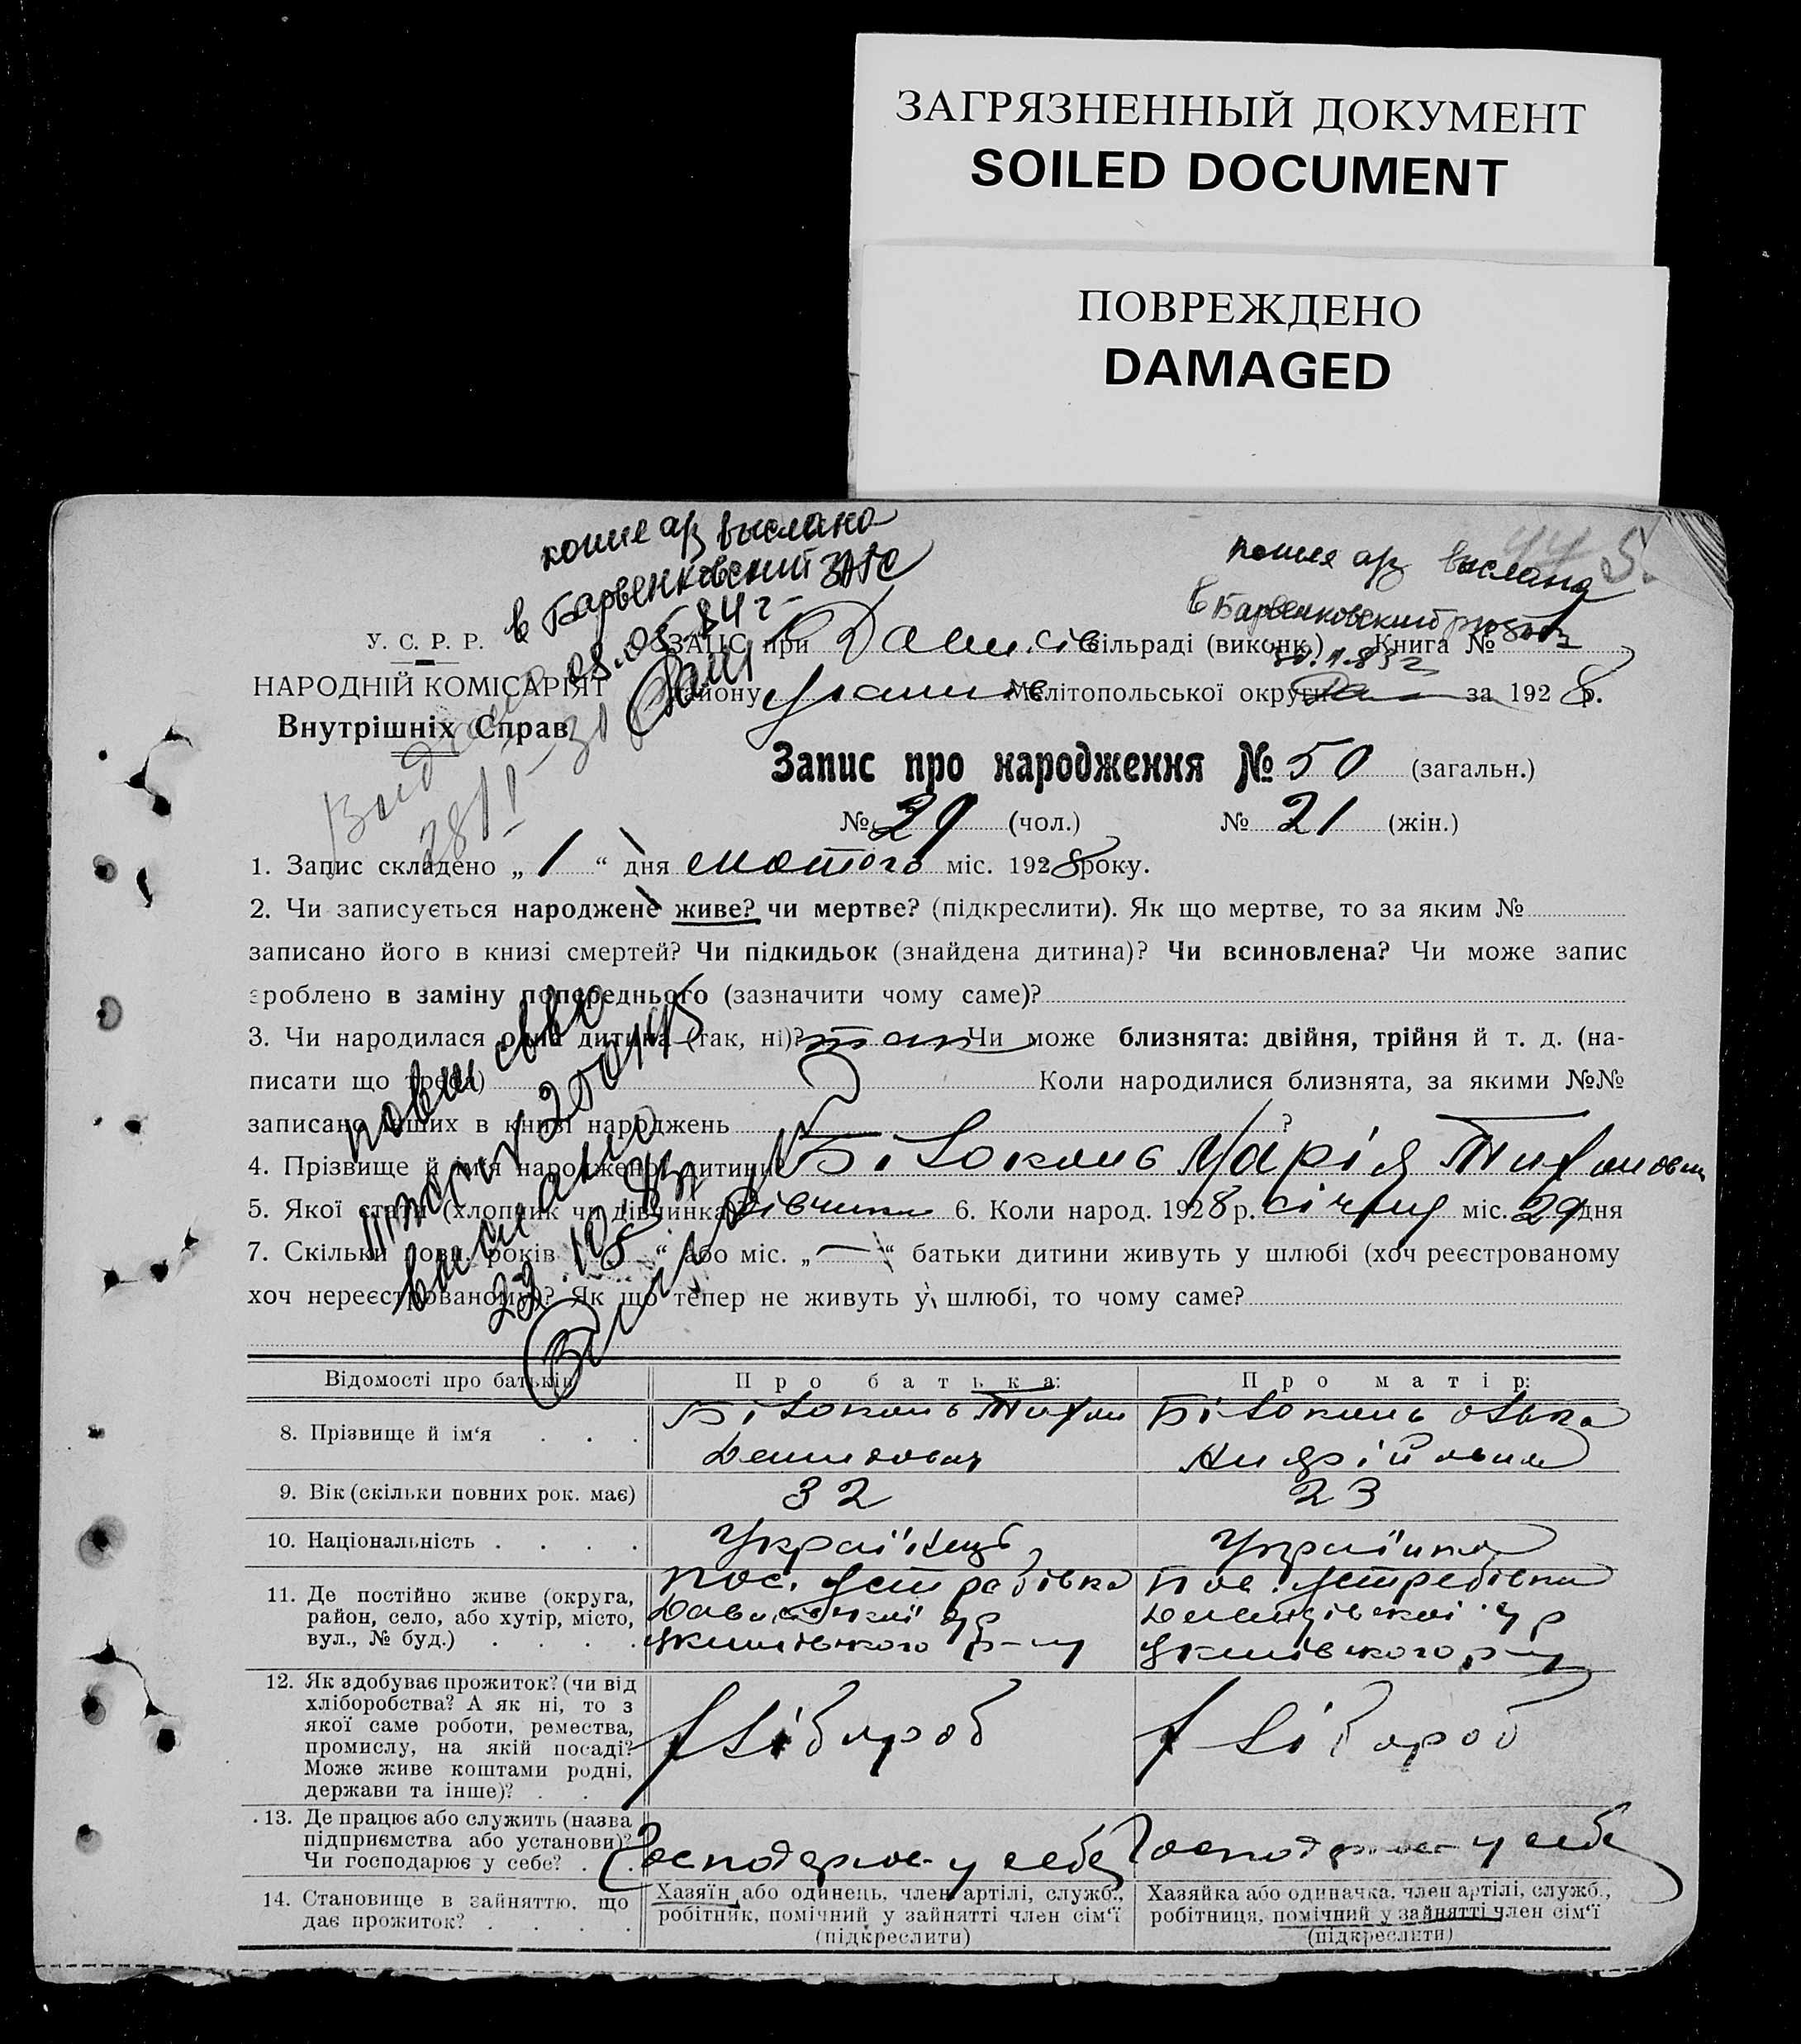 ЗАГРЯЗНЕННЫЙ ДОКУМЕНТ
SOILED DOCUMENT
ПОВРЕЖДЕНО
DAMAGED
копие а/з выслано
в Барвенковский ЗАГС
08.05.84 г.
копия а/з выслана
в Барвенковский
У. С. Р. Р.
НАРОДНІЙ КОМІСАРІЯТ
Внутрішніх Справ
ЗАПС при сільраді (виконк.) Книга №
району Мелітопольської округи за 1928 р.
Запис про народження № 50 (загальн.)
№ 29 (чол.) № 21 (жін.)
1. Запис складено „ 1 “ дня лютого міс. 1928 року.
2. Чи записується народжене живе? чи мертве? (підкреслити). Як що мертве, то за яким №
записано його в книзі смертей? Чи підкидьок (знайдена дитина)? Чи всиновлена? Чи може запис
зроблено в заміну попереднього (зазначити чому саме)?
3. Чи народилася одна дитина (так, ні)? так Чи може близнята: двійня, трійня й т. д. (на-
писати що треба) Коли народилися близнята, за якими №№
записано інших в книзі народжень ?
4. Прізвище й ім'я народженої дитини? Білоконь Марія Тихоновна
5. Якої статі (хлопчик чи дівчинка) дівчина 6. Коли народ. 1928 р. січня міс. 29 дня
7. Скільки повн. років “ або міс. „ — “ батьки дитини живуть у шлюбі (хоч реєстрованому
хоч нереєстрованому)? Як що тепер не живуть у шлюбі, то чому саме?
повт св-во
выслано
Відомості про батьків Про батька: Про матір:
8. Прізвище й ім‘я . . . Білоконь Тихон Білоконь Олька
Демидович Андрійовна
9. Вік (скільки повних рок. має) 32 23
10. Національність . . . . Українець Українка
11. Де постійно живе (округа,
район, село, або хутір, місто,
вул., № буд.) . . . .
пос. Устрабівка
р-ну
Пос. Устребівка
р-ну
12. Як здобуває прожиток? (чи від
хліборобства? А як ні, то з
якої саме роботи, ремества,
промислу, на якій посаді?
Може живе коштами родні,
держави та інше)? . .
хлібороб хлібороб
13. Де працює або служить (назва
підприємства або установи)?
Чи господарює у себе? . .
Господарює у себе Господарює у себе
14. Становище в зайняттю, що
дає прожиток? . . . .
Хазяїн або одинець, член артілі, служб.,
робітник, помічний у зайнятті член сім‘ї
(підкреслити)
Хазяйка або одиначка, член артілі, служб.,
робітниця, помічний у зайнятті член сім‘ї
(підкреслити)